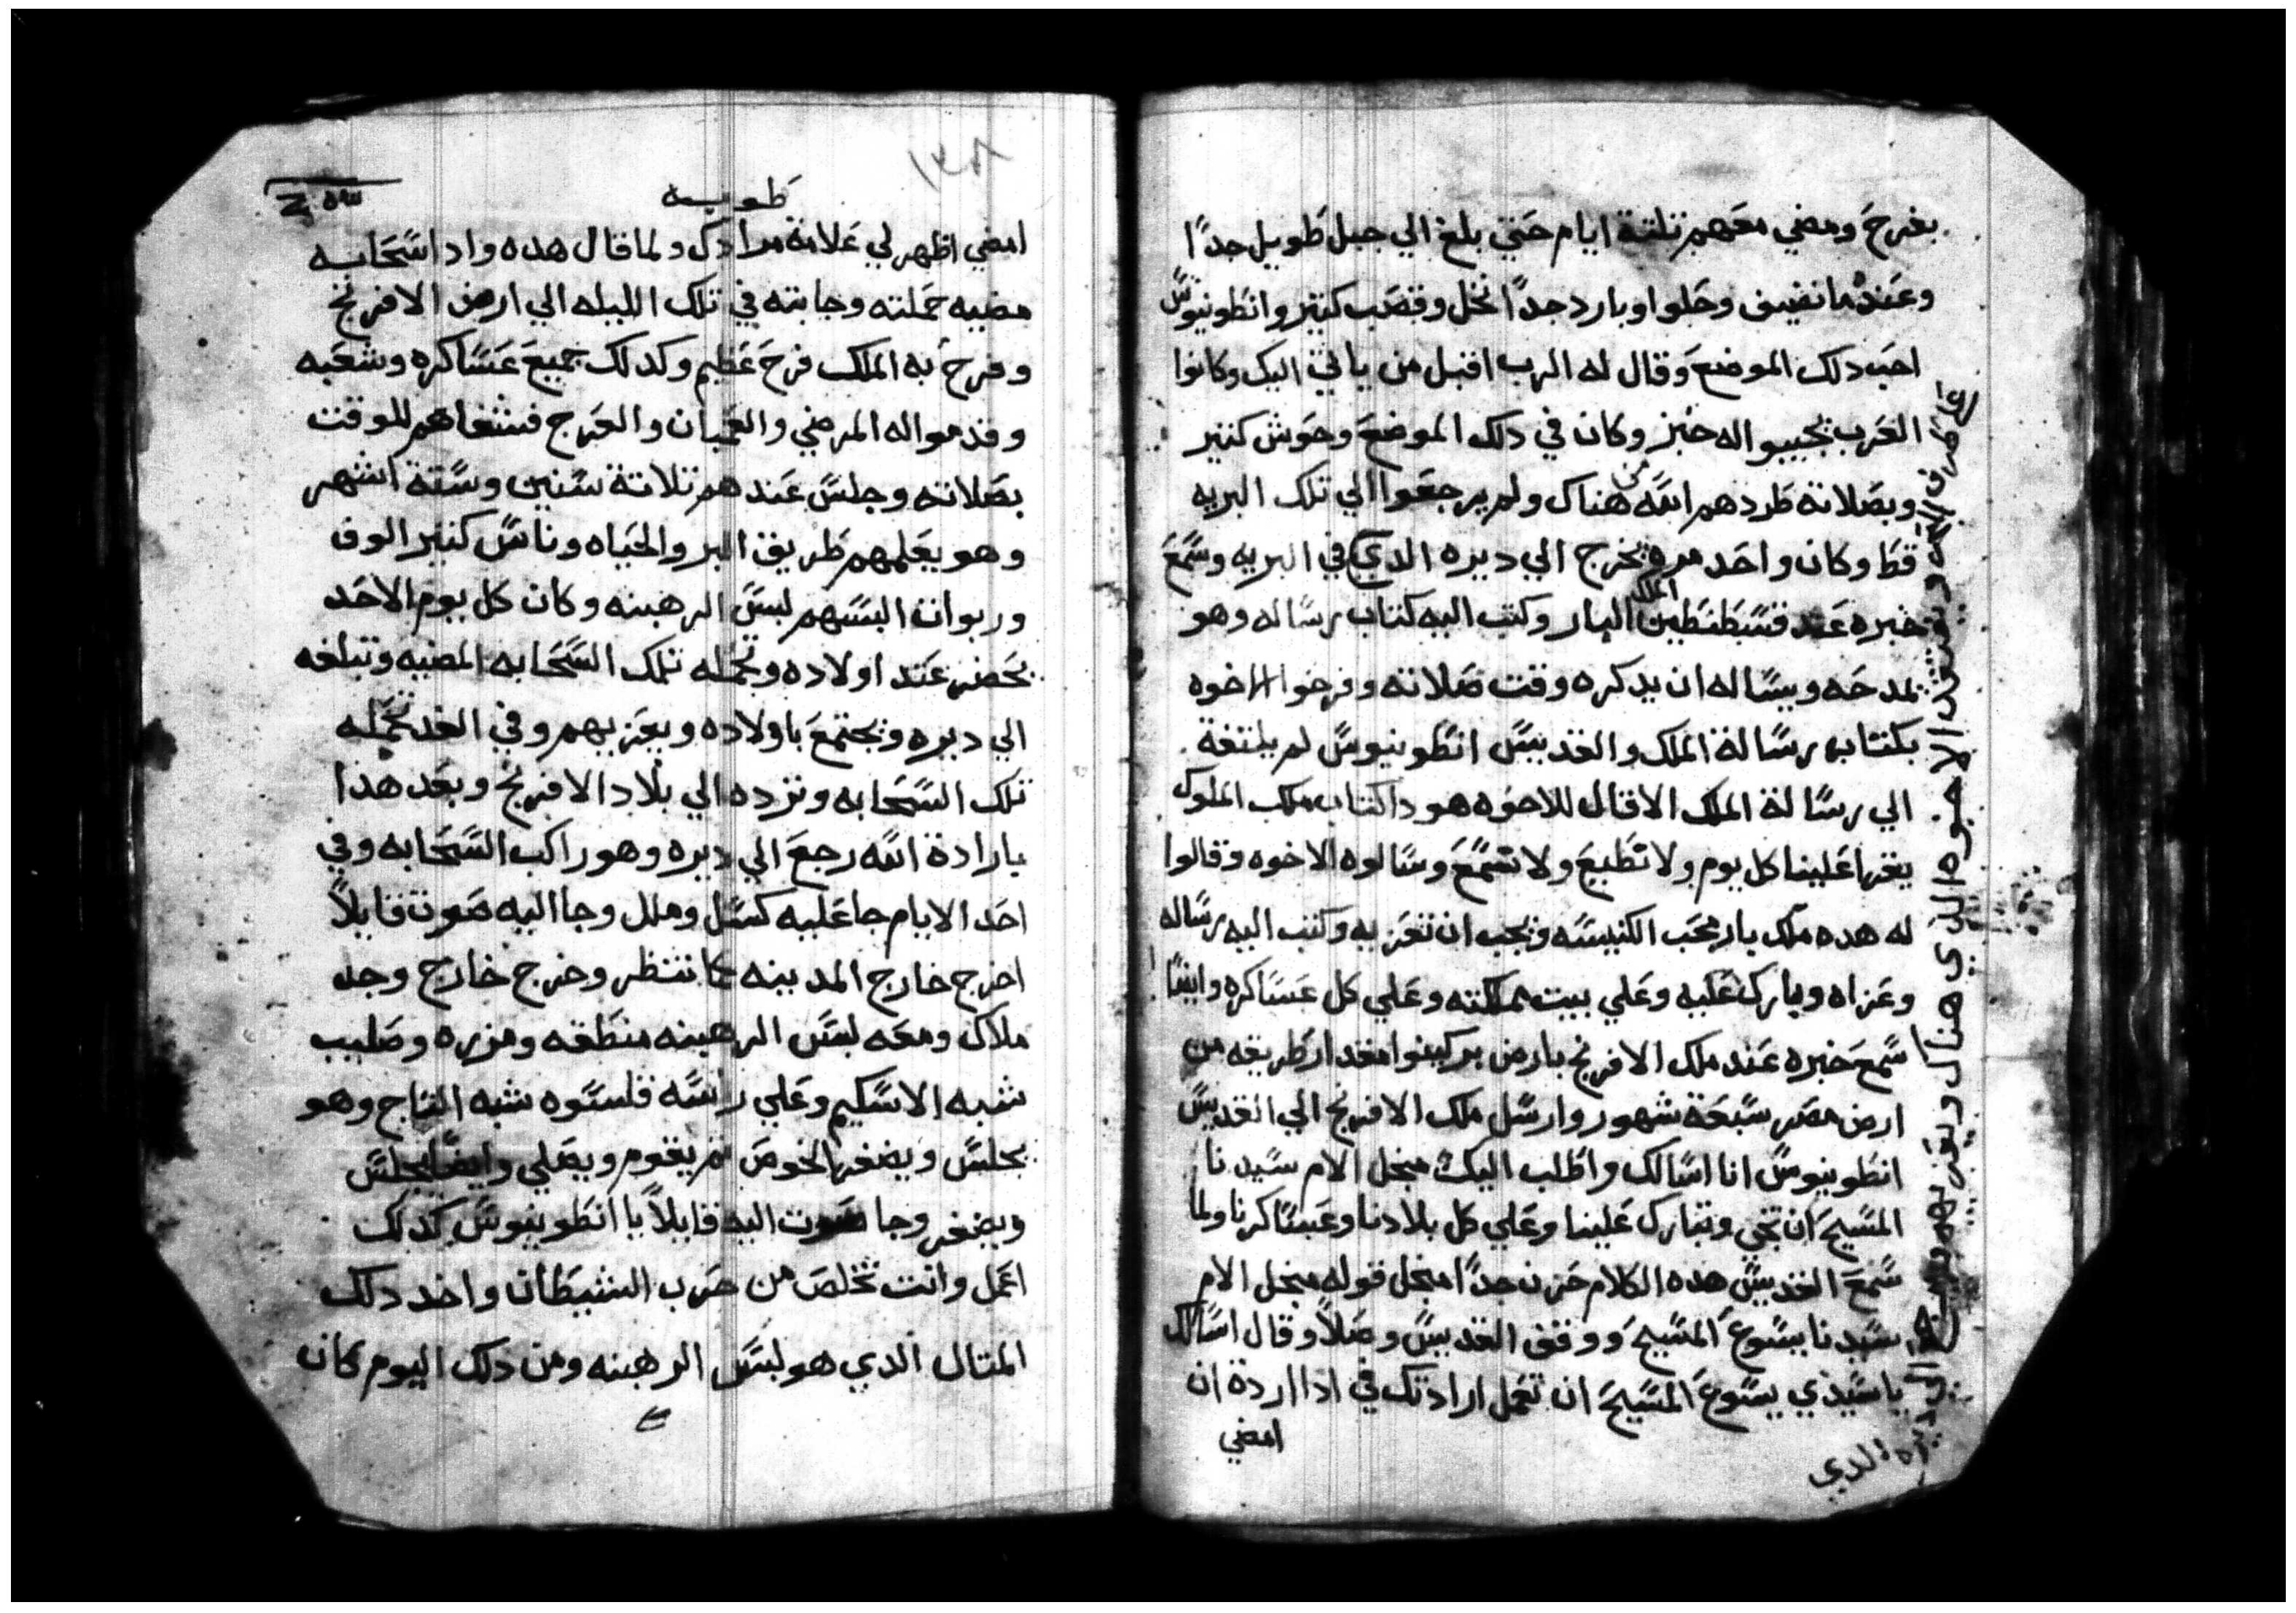 بفرح ومضي معهم تلتة ايام حتي بلغ الي جبل طويل جدًا
وعنده ما نضيف وحلوا وبارد جدًا نخل وقصب كتير وانطونيوس
احب دلك الموضع وقال له الرب اقبل من ياتي اليك وكانوا
العرب يجيبوا له خبز وكان في دلك الموضع وحوش كتير
وبصلاته طردهم الله من هناك ولم يرجعوا الي تلك البريه
قط وكان واحد مره يخرج الي ديره الدي في البريه وسمع
خبره عند قسطنطين الملك البار وكتب اليه كتاب رساله وهو
يمدحه ويساله ان يدكره وقت صلاته وفرحوا الاخوه
بكتاب رسالة الملك والقديس انطونيوس لم يلتفة
الي رسالة الملك الا قال للاخوه هودا كتاب ملك الملوك
يقرا علينا كل يوم ولا نطيع ولا نسمع وسالوه الاخوه وقالوا
له هده ملك بار محب الكنيسه ويجب ان تعزيه وكتب اليه رساله
وعزاه وبارك عليه وعلي بيت مملكته وعلي كل عساكره وايضًا
سمع خبره عند ملك الافرنج بارض بركينوا مقدار طريقه من
ارض مصر سبعة شهور وارسل ملك الافرنج الي القديس
انطونيوس انا اسالك واطلب اليك مبجل الام سيدنا
المسيح ان تجي وتبارك علينا وعلي كل بلادنا وعساكرنا ولما
سمع القديس هده الكلام حزن جدًا مبجل قوله مبجل الام
سيدنا يسوع المسيح ووقف القديس وصلاً وقال اسالك
يا سيدي يسوع المسيح ان تعمل ارادتك في ادا اردة ان
امضي
ويفتقد الاخوه الدي هناك ويعزيهم ويرجع الي ديره الدي
١٣٨
طوبه
امضي اظهر لي علامة مرادك ولما قال هده وادا سحابه
مضيه حملته وجابته في تلك الليله الي ارض الافرنج
وفرح به الملك فرح عظيم وكدلك جميع عساكره وشعبه
وقدموا له المرضي والعميان والعرج فشفاهم للوقت
بصلاته وجلس عندهم تلاتة سنين وستة اشهر
وهو يعلمهم طريق البر والحياه وناس كتير الوف
وربوات البسهم لبس الرهبنه وكان كل يوم الاحد
يحضر عند اولاده وتحمله تلك السحابه المضيه وتبلغه
الي ديره ويجتمع باولاده ويعزيهم وفي الغد تحمله
تلك السحابه وترده الي بلاد الافرنج وبعد هدا
بارادة الله رجع الي ديره وهو راكب السحابه وفي
احد الايام جا عليه كسل وملل وجا اليه صوت قايلاً
اخرج خارج المدينه كما تنتظر وخرج خارج وجد
ملاك ومعه لبس الرهبنه منطقه ومزره وصليب
شبه الاسكيم وعلي راسه قلسوه شبه التاج وهو
يجلس ويضفر الخوص تم يقوم ويصلي وايضًا يجلس
ويضفر وجا صوت اليه قايلاً يا انطونيوس كدلك
اعمل وانت تخلص من حرب الشيطان واخد دلك
المتال الدي هو لبس الرهبنه ومن دلك اليوم كان